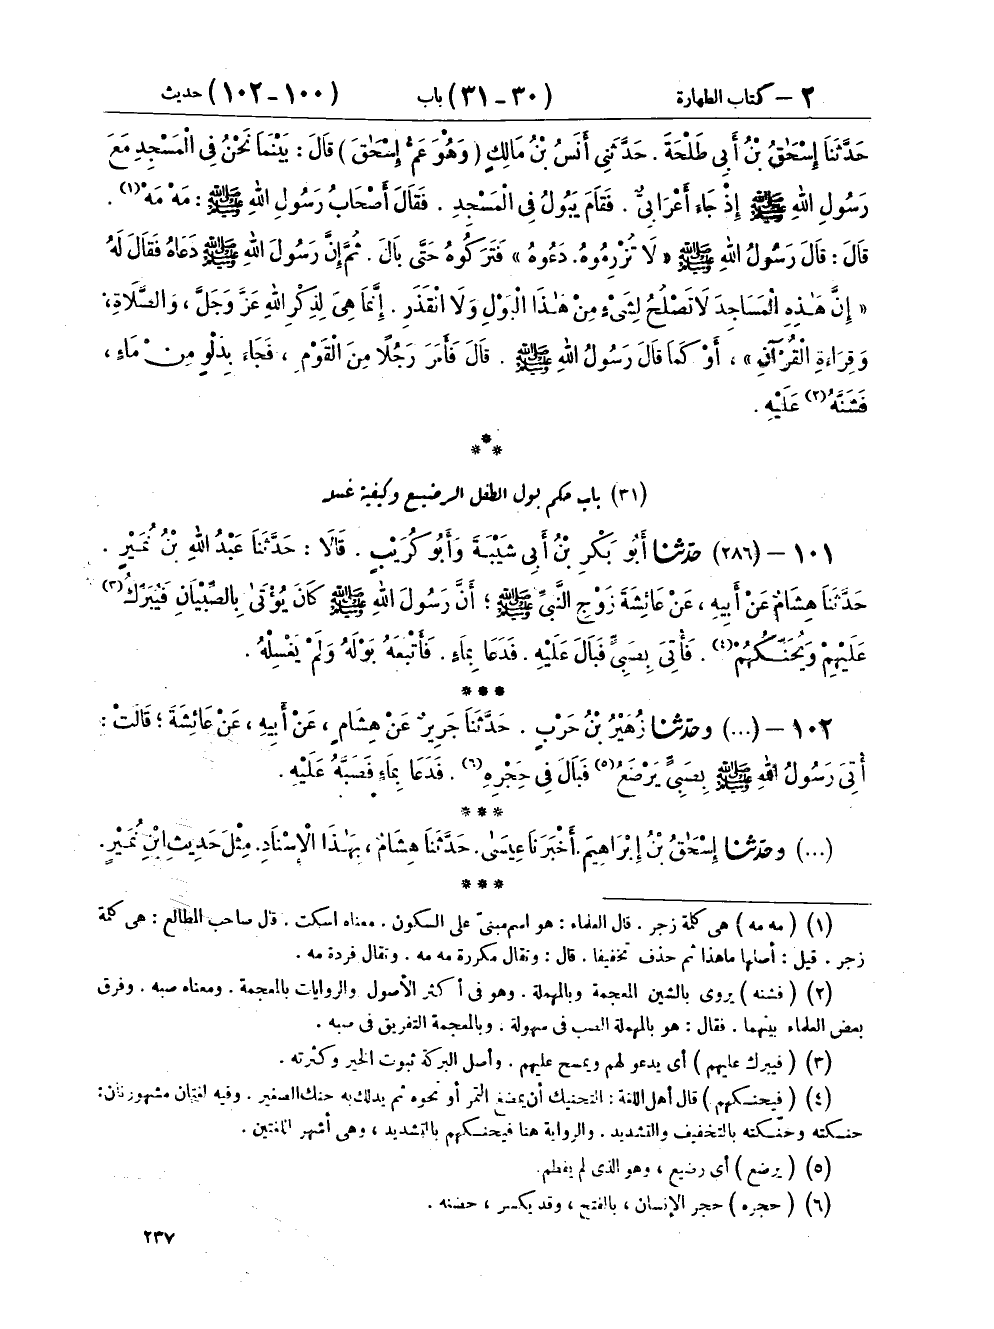 ٢ – كتاب الطهارة (٣٠-٣١) باب (١٠٠-١٠٢) حديث
حَدَّثَنَا إِسْحَٰقُ بْنُ أَبِى طَلْحَةَ . حَدَّثَنِى أَنَسُ بْنُ مَالِكٍ ( وَهُوَ عَمُّ إِسْحَٰقَ ) قَالَ : بَيْنَمَا نَحْنُ فِى الْمَسْجِدِ مَعَ
رَسُولِ اللهِ ﷺ إِذْ جَاءَ أَعْرَابِىٌّ . فَقَامَ يَبُولُ فِى الْمَسْجِدِ . فَقَالَ أَصْحَابُ رَسُولِ اللهِ ﷺ : مَهْ مَهْ(١) .
قَالَ : قَالَ رَسُولُ اللهِ ﷺ « لَا تُزْرِمُوهُ. دَعُوهُ » فَتَرَكُوهُ حَتَّى بَالَ . ثُمَّ إِنَّ رَسُولَ اللهِ ﷺ دَعَاهُ فَقَالَ لَهُ
« إِنَّ هَٰذِهِ الْمَسَاجِدَ لَا تَصْلُحُ لِشَىْءٍ مِنْ هَٰذَا الْبَوْلِ وَلَا الْقَذَرِ . إِنَّمَا هِىَ لِذِكْرِ اللهِ عَزَّ وَجَلَّ ، وَالصَّلَاةِ،
وَقِرَاءَةِ الْقُرْآنِ » ، أَوْ كَمَا قَالَ رَسُولُ اللهِ ﷺ . قَالَ فَأَمَرَ رَجُلًا مِنَ الْقَوْمِ ، فَجَاءَ بِدَلْوٍ مِنْ مَاءٍ ،
فَشَنَّهُ(٢) عَلَيْهِ .
***
(٣١) باب حكم بول الطفل الرضيع وكيفية غسله
١٠١ – (٢٨٦) حَدَّثَنَا أَبُو بَكْرِ بْنُ أَبِى شَيْبَةَ وَأَبُو كُرَيْبٍ . قَالَا : حَدَّثَنَا عَبْدُ اللهِ بْنُ نُمَيْرٍ .
حَدَّثَنَا هِشَامٌ عَنْ أَبِيهِ ، عَنْ عَائِشَةَ زَوْجِ النَّبِىِّ ﷺ ؛ أَنَّ رَسُولَ اللهِ ﷺ كَانَ يُؤْتَىٰ بِالصِّبْيَانِ فَيُبَرِّكُ(٣)
عَلَيْهِمْ وَيُحَنِّكُهُمْ(٤) . فَأُتِىَ بِصَبِىٍّ فَبَالَ عَلَيْهِ . فَدَعَا بِمَاءٍ . فَأَتْبَعَهُ بَوْلَهُ وَلَمْ يَغْسِلْهُ .
***
١٠٢ – (...) وحَدَّثَنَا زُهَيْرُ بْنُ حَرْبٍ . حَدَّثَنَا جَرِيرٌ عَنْ هِشَامٍ ، عَنْ أَبِيهِ ، عَنْ عَائِشَةَ ؛ قَالَتْ :
أُتِىَ رَسُولُ اللهِ ﷺ بِصَبِىٍّ يَرْضَعُ(٥) فَبَالَ فِى حِجْرِهِ(٦) . فَدَعَا بِمَاءٍ فَصَبَّهُ عَلَيْهِ .
***
(...) وحَدَّثَنَا إِسْحَٰقُ بْنُ إِبْرَاهِيمَ. أَخْبَرَنَا عِيسَىٰ. حَدَّثَنَا هِشَامٌ ، بِهَٰذَا الْإِسْنَادِ. مِثْلَ حَدِيثِ ابْنِ نُمَيْرٍ.
***
(١) ( مه مه ) هى كلمة زجر . قال العلماء : هو اسم مبنىّ على السكون . معناه اسكت . قال صاحب المطالع : هى كلمة
زجر . قيل : أصلها ماهذا ثم حذف تخفيفا . قال : وتقال مكررة مه مه . وتقال فردة مه .
(٢) ( فشنه ) يروى بالشين المعجمة وبالمهملة . وهو فى أكثر الأصول والروايات بالمعجمة . ومعناه صبه . وفرق
بعض العلماء بينهما . فقال : هو بالمهملة الصب فى سهولة . وبالمعجمة التفريق فى صبه .
(٣) ( فيبرك عليهم ) أى يدعو لهم ويمسح عليهم . وأصل البركة ثبوت الخير وكثرته .
(٤) ( فيحنكهم ) قال أهل اللغة : التحنيك أن يمضغ التمر أو نحوه ثم يدلك به حنك الصغير . وفيه لغتان مشهورتان:
حنكته وحنّكته بالتخفيف والتشديد . والرواية هنا فيحنكهم بالتشديد ، وهى أشهر اللغتين .
(٥) ( يرضع ) أى رضيع ، وهو الذى لم يفطم.
(٦) ( حجره ) حجر الإنسان ، بالفتح ، وقد يكسر ، حضنه .
٢٣٧